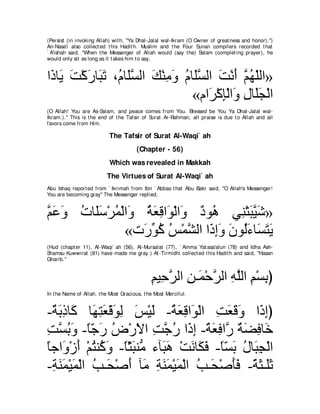 (Persist (in invoking Allah) with, "Ya Dhal-Jalal wal-Ikram (O Owner of greatness and honor).")
An-Nasa'i also collected this Hadith. Muslim and the Four Sunan compilers recorded that
`A'ishah said, "When the Messenger of Allah would (say the) Salam (completing prayer), he
would only sit as long as it takes him to say,
«اللْهُمَّ أَنْتَ السَّلَامُ وَمِنْكَ السَّلَامُ، تَبَارَكْتَ يَاذَا
الْجَلَالِ وَالْإِكْرَام»
(O Allah! You are As-Salam, and peace comes from You. Blessed be You Ya Dhal-Jalal wal-
Ikram.)." This is the end of the Tafsir of Surat Ar-Rahman, all praise is due to Allah and all
favors come from Him.
The Tafsir of Surat Al-Waqi`ah
(Chapter - 56)
Which was revealed in Makkah
The Virtues of Surat Al-Waqi`ah
Abu Ishaq reported from `Ikrimah from Ibn `Abbas that Abu Bakr said, "O Allah's Messenger!
You are becoming gray" The Messenger replied,
«شَيَّبَتْنِي هُودٌ وَالْوَاقِعَةُ وَالْمُرْسَلَاتُ وَعَمَّ
يَتَسَاءَلُونَ وَإِذَا الشَّمْسُ كُوِّرَت»
(Hud (chapter 11), Al-Waqi`ah (56), Al-Mursalat (77), `Amma Yatasa'alun (78) and Idha Ash-
Shamsu Kuwwirat (81) have made me gray.) At-Tirmidhi collected this Hadith and said, "Hasan
Gharib."
بِسْمِ اللَّهِ الرَّحْمَـنِ الرَّحِيمِ
In the Name of Allah, the Most Gracious, the Most Merciful.
(إِذَا وَقَعَتِ الْوَاقِعَةُ- لَيْسَ لِوَقْعَتِهَا كَاذِبَةٌ-
خَافِضَةٌ رَّافِعَةٌ- إِذَا رُجَّتِ الاٌّرْضُ رَجّاً- وَبُسَّتِ
الْجِبَالُ بَسّاً- فَكَانَتْ هَبَآءً مُّنبَثّاً- وَكُنتُمْ أَزْوَاجاً
ثَلَـثَةً- فَأَصْحَـبُ الْمَيْمَنَةِ مَآ أَصْحَـبُ الْمَيْمَنَةِ-